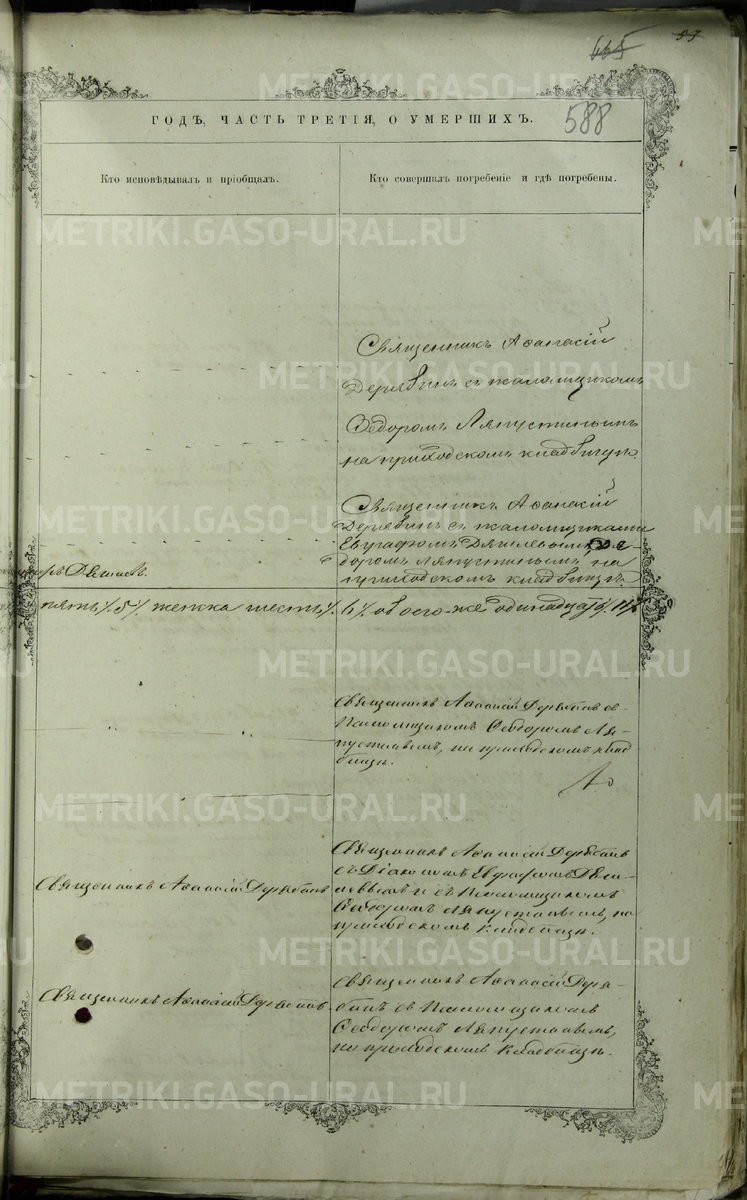 665
97
588
ГОДЪ, ЧАСТЬ ТРЕТІЯ, О УМЕРШИХЪ.
Кто исповѣдывалъ и пріобщалъ.
Кто совершалъ погребеніе и гдѣ погребены.
Священникъ Аѳанасій
Дерябинъ съ псаломщикомъ
Ѳедоромъ Ляпустинымъ
на приходскомъ кладбищѣ.
Священникъ Аѳанасій
Дерябинъ съ псаломщиками
Евграфомъ
доромъ Ляпустинымъ на
приходскомъ кладбищѣ.
пять /5/ женска шесть /6/ обоего-же одинадцать /11/
Священникъ Аѳанасій Дерябинъ съ
Псаломщикомъ Ѳеодоромъ Ля-
пустинымъ, на приходскомъ клад-
бищѣ.
Священникъ Аѳанасій Дерябинъ
Священникъ Аѳанасій Дерябинъ
съ Діакономъ Евграфомъ
и съ Псаломщикомъ
Ѳеодоромъ Ляпустинымъ, на
приходскомъ кладбищѣ.
Священникъ Аѳанасій Дерябинъ.
Священникъ Аѳанасій Деря-
бинъ съ Псаломщикомъ
Ѳеодоромъ Ляпустинымъ,
на приходскомъ кладбищѣ.
METRIKI.GASO-URAL.RU